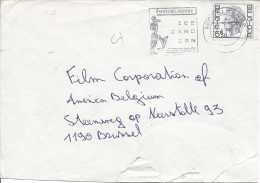 MIDDELKERKE
ZEE
ZAND
ZON
Film Corporation of
America Belgium
Steenweg op Neerstalle 93
1190 Brussel